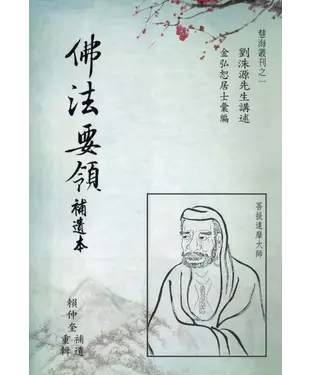 慧海叢刊之一
劉洙源先生講述
金弘恕居士彙編
佛法要領
補遺本
菩提達摩大師
賴仲奎 補遺
重輯